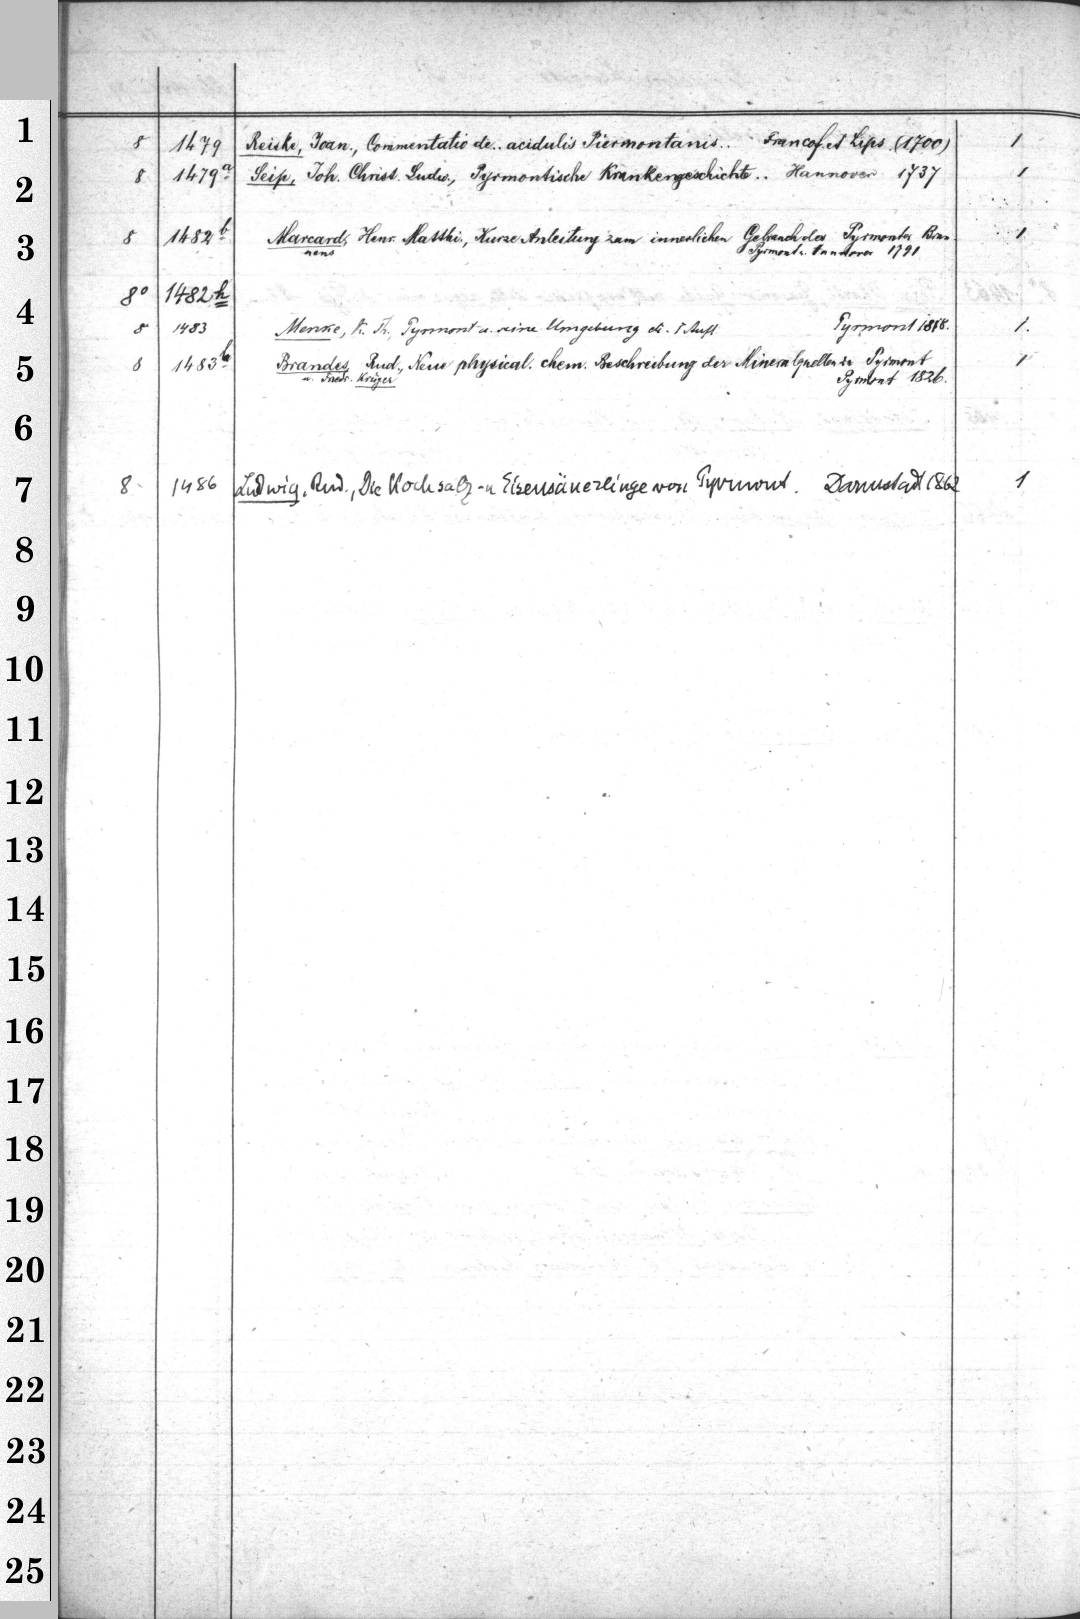 1
8 1479 Reiske, Joan., Commentatio de.. acidulis Piermontanis.. Francof. et Lips. (1700) 1
2
8 1479a Seip, Joh. Christ. Ludw., Pyrmontische Krankengeschichte.. Hannover 1737 1
3
8 1482b Marcard, Henr. Matthi., Kurze Anleitung zum innerlichen Gebrauch des Pyrmonter Brun- 1
nens Pyrmont u. Hannover 1791
8º 1482h
4
8 1483 Menke, K. Th., Pyrmont u. seine Umgebung Aufl. Pyrmont 1.
5
8 1483b Brandes, Rud., Neue physical. chem. Beschreibung der Mineralquellen zu Pyrmont 1
u. Friedr. Krüger Pyrmont 1826.
6
7
8 1486 Ludwig, Rud., Die Kochsalz- u Eisensäuerlinge von Pyrmont. Darmstadt 1862 1
8
9
10
11
12
13
14
15
16
17
18
19
20
21
22
23
24
25